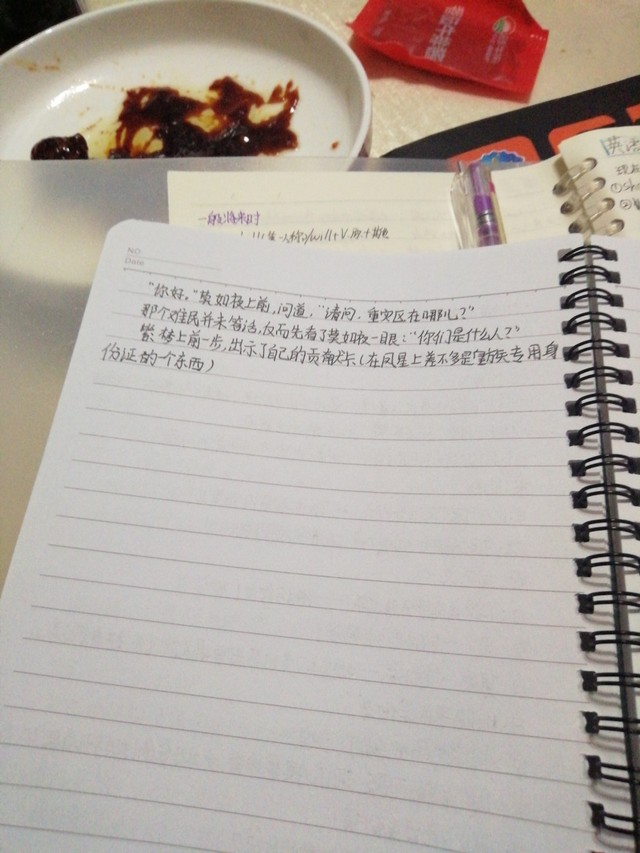 一般将来时
第一人称)/will+V.原+其他
NO.
Date
"你好。"莫如枝上前,问道,"请问,重灾区在哪儿?"
那个难民并未答话,反而先看了莫如枝一眼:"你们是什么人?"
紫楼上前一步,出示了自己的贡献卡(在风星上差不多是皇族专用身
份证的一个东西)
英语
现在
①sh
②